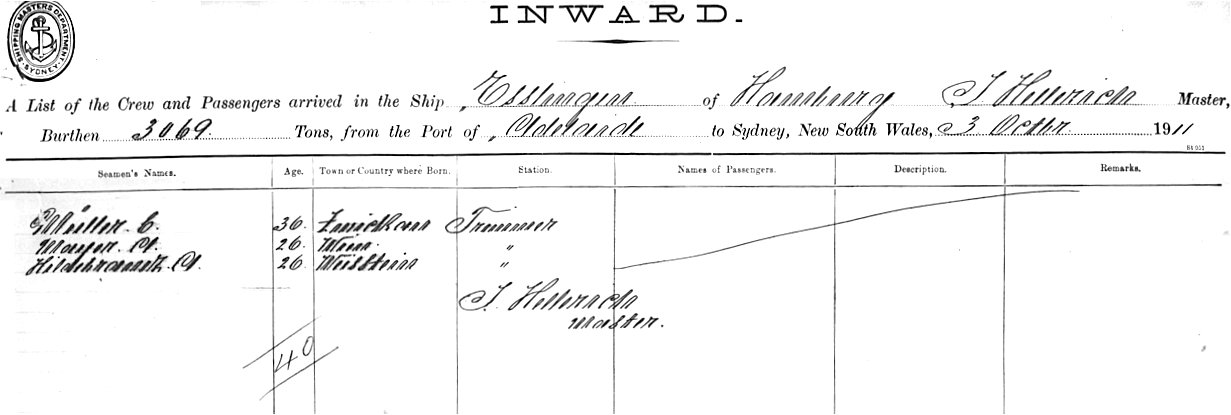 SHIPPING MASTERS DEPARTMENT SYDNEY
INWARD.
A List of the Crew and Passengers arrived in the Ship Esslingen of Hamburg J Hellerich Master,
Burthen 3069 Tons, from the Port of Adelaide to Sydney, New South Wales, 3 Octbr 1911
Seamen's Names. Age. Town or Country where Born. Station. Names of Passengers. Description. Remarks.
Müller. C. 36. Zwickau Trimmer
Mayer. A. 26. Wien. "
Hildebrandt. A. 26 Weisstein "
J. Hellerich
Master.
40